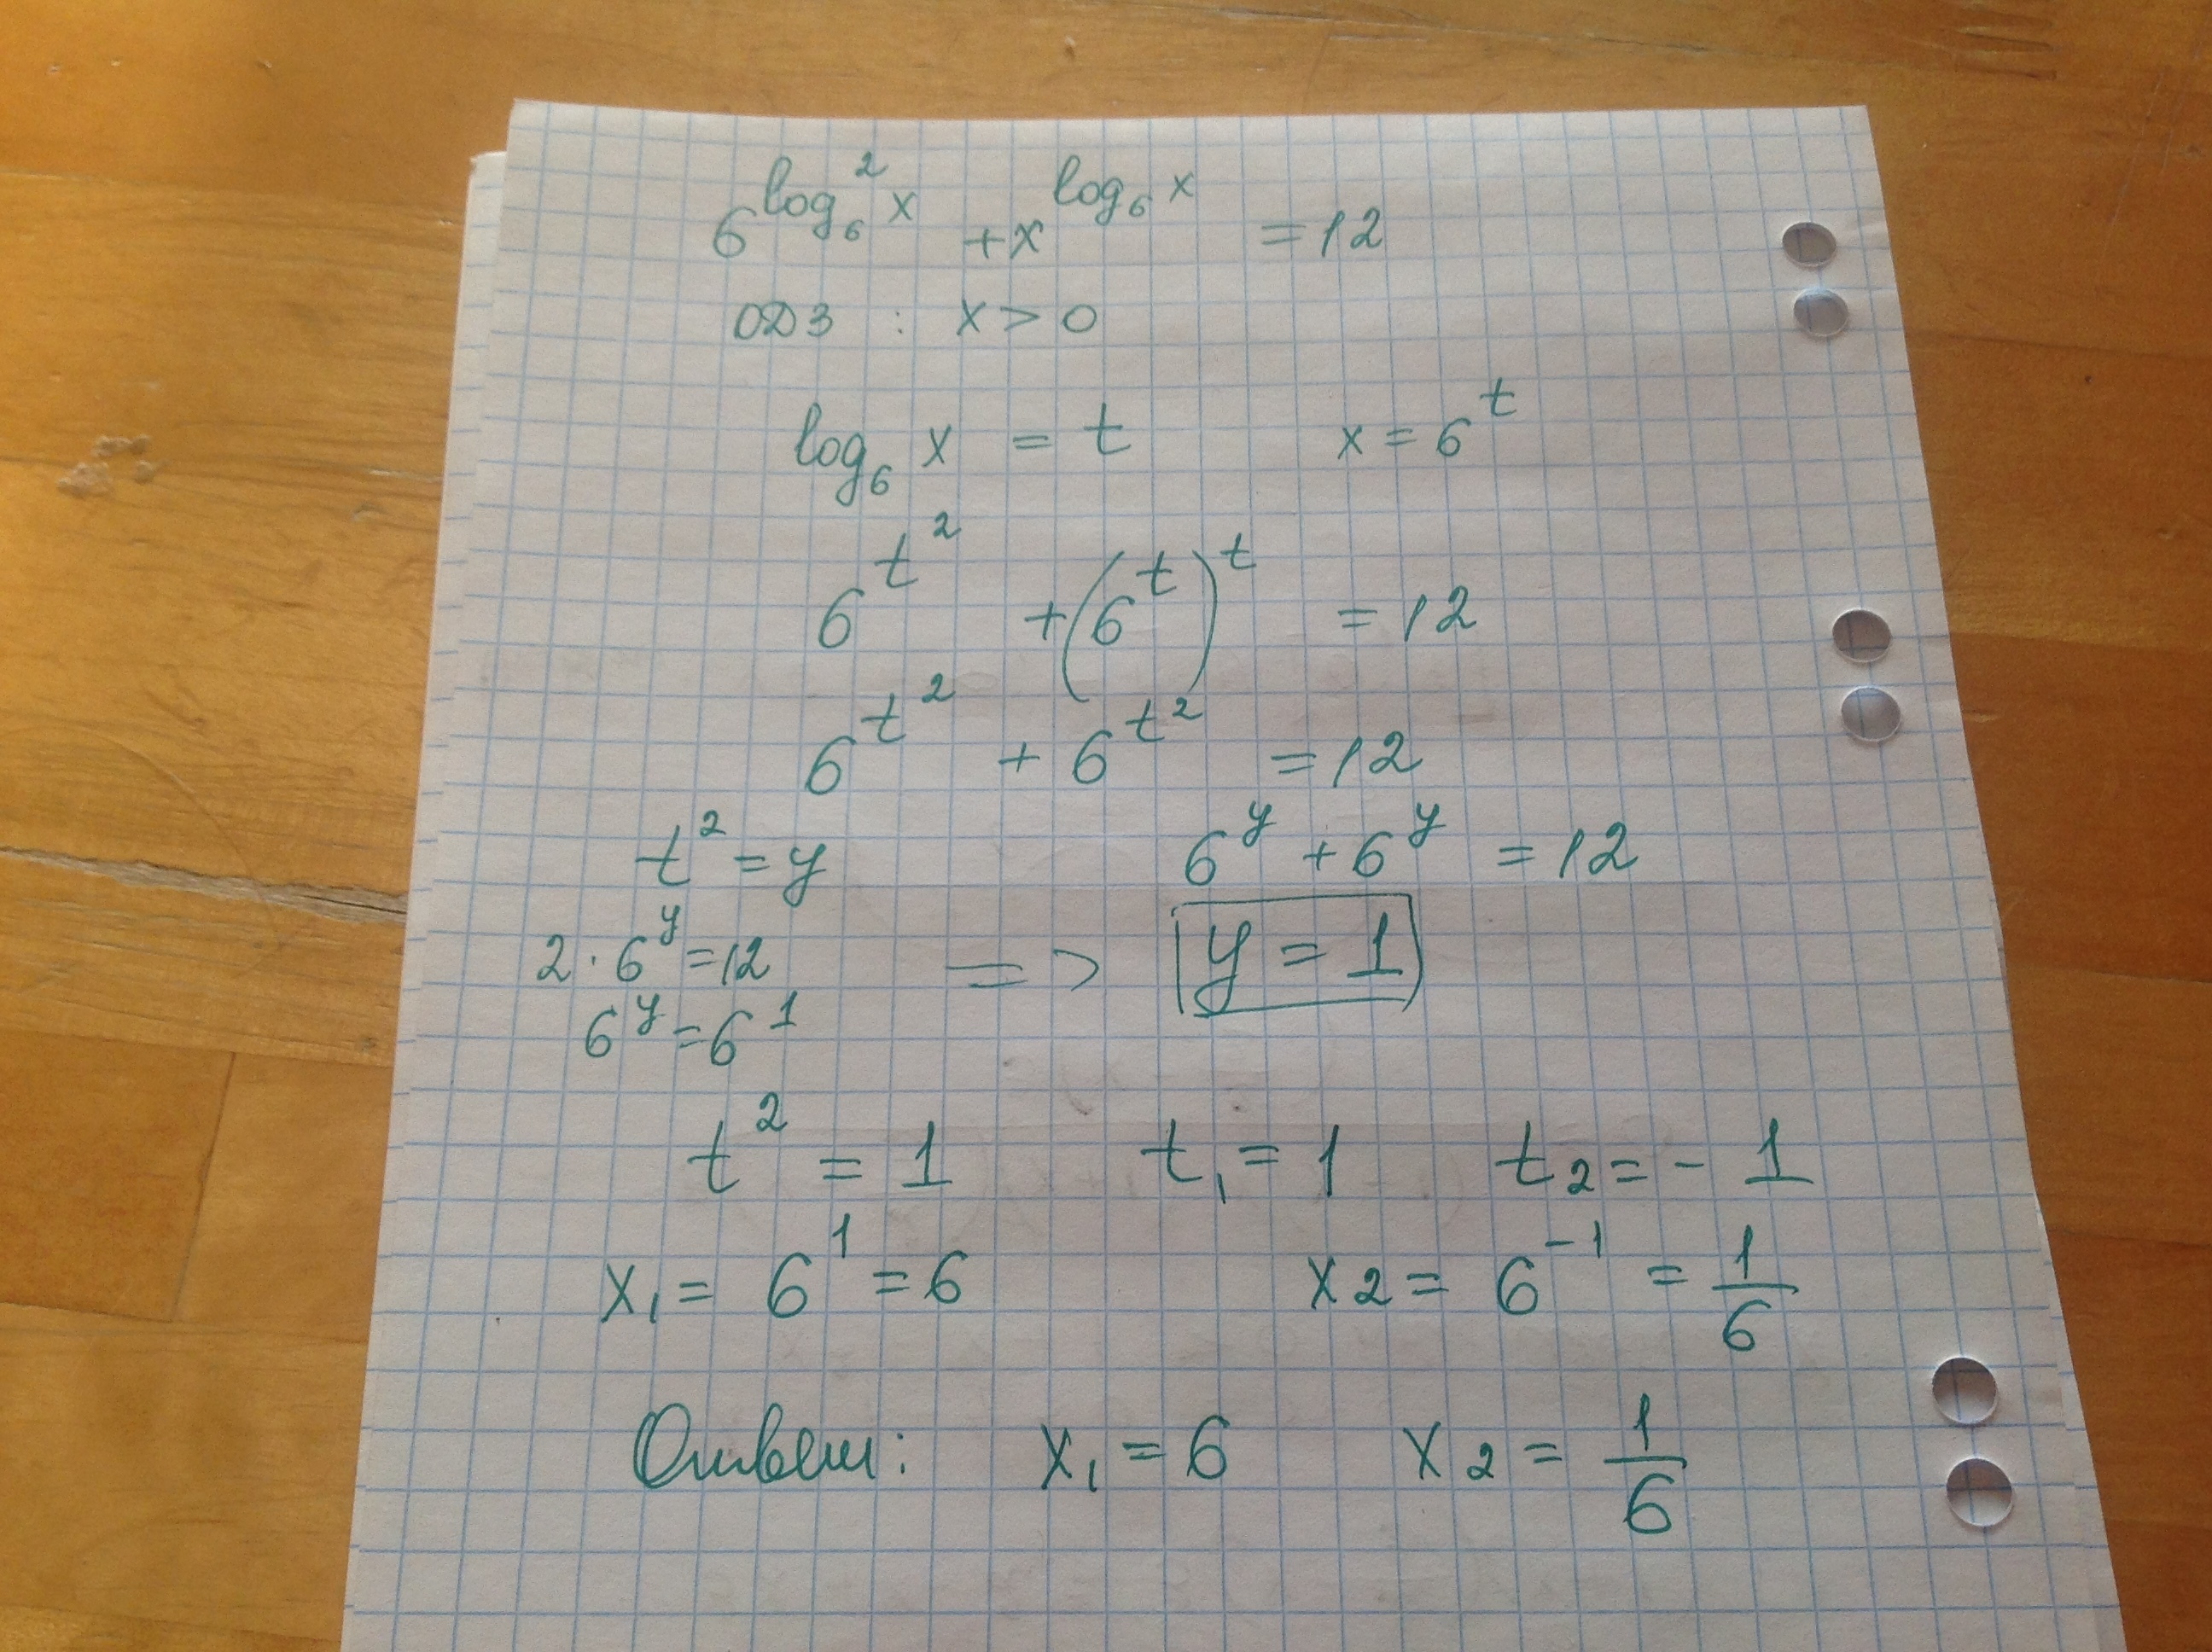 6^(log₆² x) + x^(log₆ x) = 12
ОДЗ : x > 0
log₆ x = t x = 6^t
6^(t²) + (6^t)^t = 12
6^(t²) + 6^(t²) = 12
t² = y 6^y + 6^y = 12
2 · 6^y = 12 => y = 1
6^y = 6^1
t² = 1 t₁ = 1 t₂ = - 1
x₁ = 6^1 = 6 x₂ = 6^(-1) = 1/6
Ответ: x₁ = 6 x₂ = 1/6